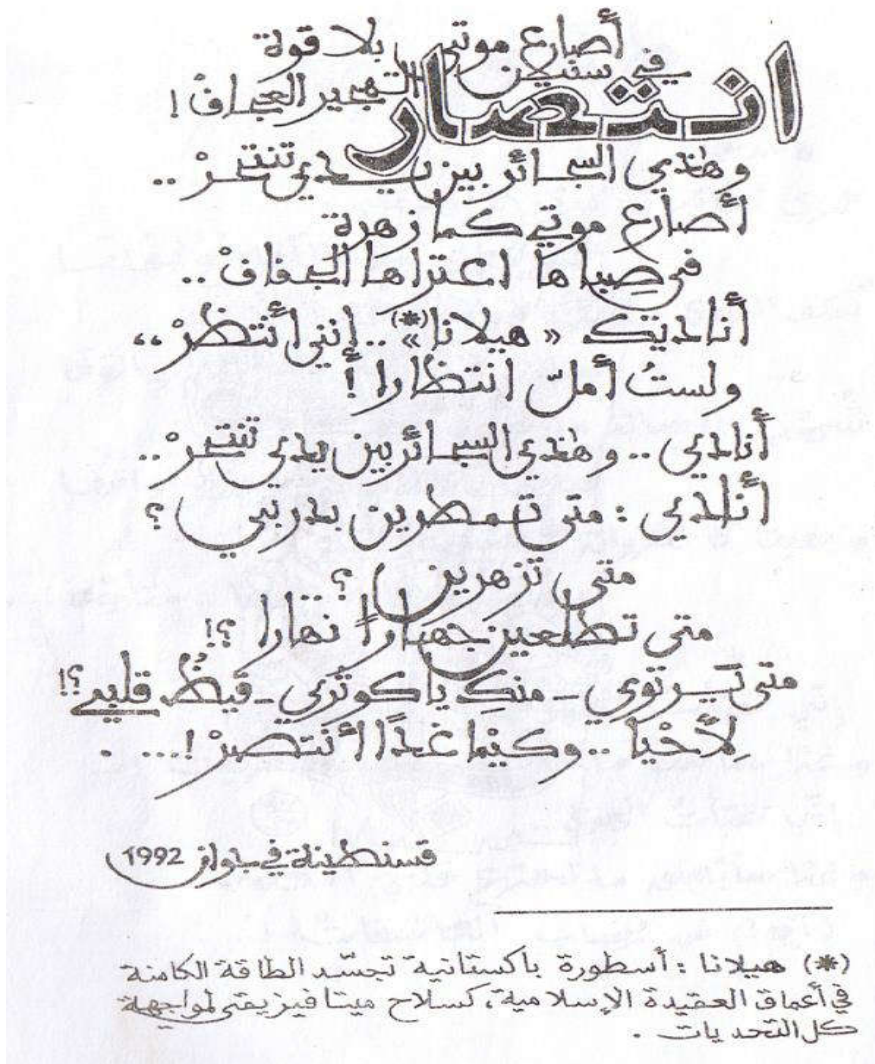 انتصار
أصارع موتي بلا قوة
في سنين الهجير العجاف !
وهذي السجائر بين يدي تنتحرْ ..
أصارع موتي كما زهرة
في صباها اعتراها الجفافْ ..
أناديك « هيلانا (*) » .. إنني أنتظرْ ،،
ولستُ أملّ انتظارا !
أنادي .. وهذي السجائر بين يدي تنتحرْ ..
أنادي : متى تمطرين بدربي ؟
متى تزهرين ؟
متى تطلعين جهارًا نهارا ؟!
متى يرتوي - منكِ يا كوثري - قيظُ قلبي ؟!
لأحْيا .. وكيما غدًا أنتصرْ ! ... .
قسنطينة في جوان 1992
(*) هيلانا : أسطورة باكستانية تجسّد الطاقة الكامنة
في أعماق العقيدة الإسلامية، كسلاح ميتافيزيقي لمواجهة
كل التحديات .